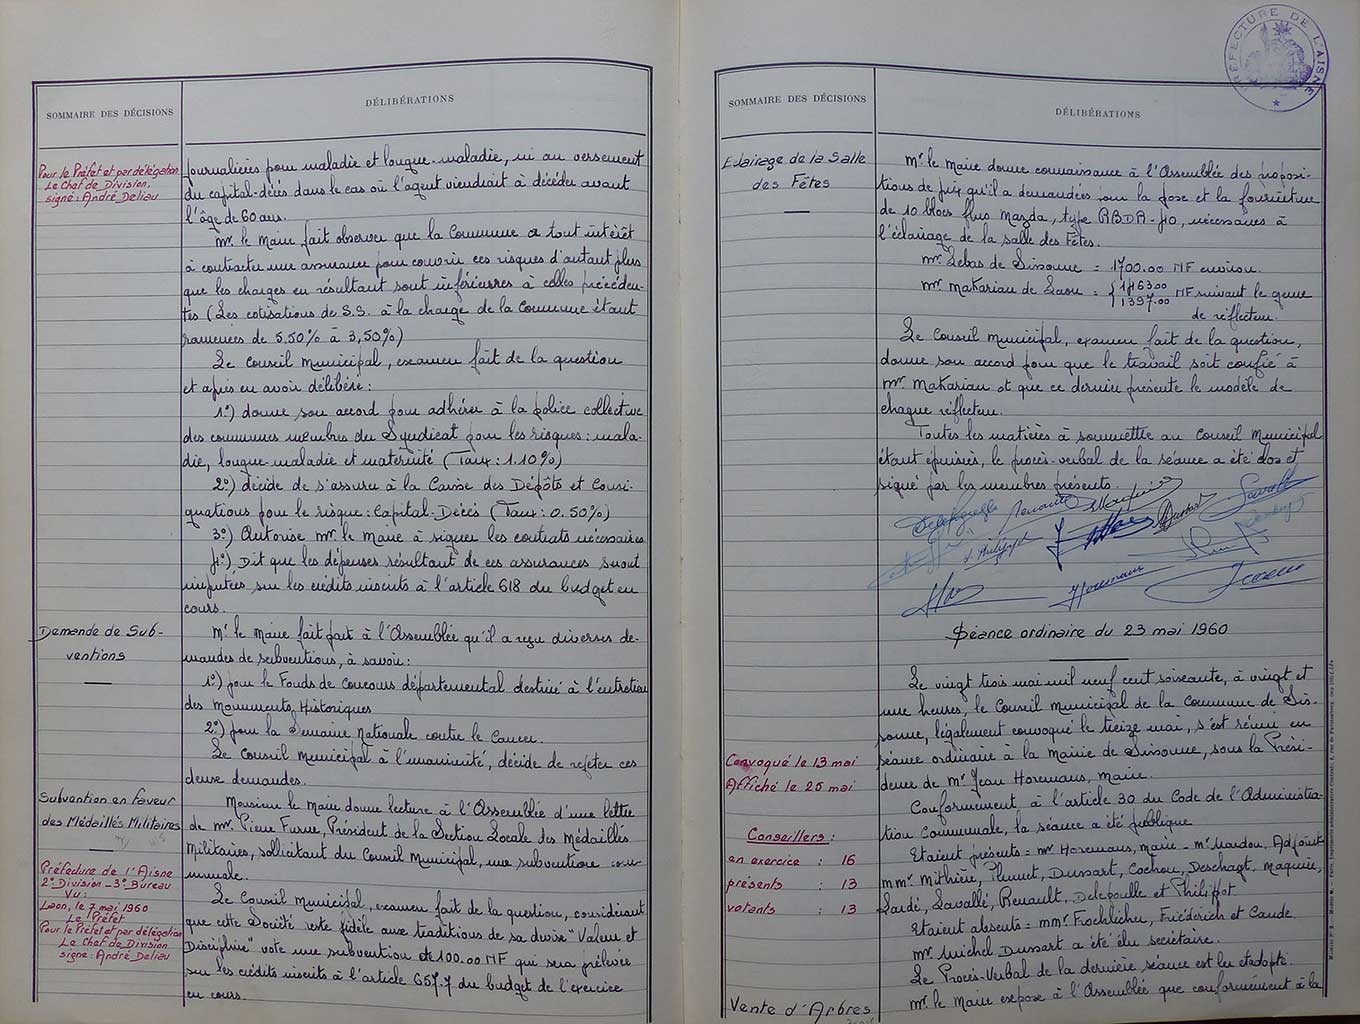 SOMMAIRE DES DÉCISIONS
DÉLIBÉRATIONS
Pour le Préfet et par délégation
Le Chef de Division,
signé : André Deliau
journalières pour maladie et longue-maladie, ni au versement
du capital-décès dans le cas où l'agent viendrait à décéder avant
l'âge de 60 ans.
Mr. le Maire fait observer que la Commune a tout intérêt
à contracter une assurance pour couvrir ces risques d'autant plus
que les charges en résultant sont inférieures à celles précéden-
tes (Les cotisations de S.S. à la charge de la Commune étant
ramenées de 5,50% à 3,50%)
Le Conseil Municipal, examen fait de la question
et après en avoir délibéré :
1°) donne son accord pour adhérer à la police collective
des communes membres du Syndicat pour les risques : mala-
die, longue-maladie et maternité (Taux : 1.10%)
2°) décide de s'assurer à la Caisse des Dépôts et Consi-
gnations pour le risque : Capital-Décès (Taux : 0.50%)
3°) Autorise Mr. le Maire à signer les contrats nécessaires
4°) Dit que les dépenses résultant de ces assurances seront
imputées sur les crédits inscrits à l'article 618 du budget en
cours.
Demande de Sub-
ventions
Mr. le Maire fait part à l'Assemblée qu'il a reçu diverses de-
mandes de subventions, à savoir :
1°) pour le Fonds de Concours départemental destiné à l'entretien
des Monuments Historiques
2°) pour la Semaine Nationale contre le Cancer.
Le Conseil Municipal à l'unanimité, décide de rejeter ces
deux demandes.
Subvention en faveur
des Médaillés Militaires
Monsieur le Maire donne lecture à l'Assemblée d'une lettre
de Mr. Pierre Furne, Président de la Section Locale des Médaillés
Militaires, sollicitant du Conseil Municipal, une subvention com-
munale.
Préfecture de l'Aisne
2° Division - 3° Bureau
Vu :
Laon, le 7 mai 1960
Le Préfet
Pour le Préfet et par délégation
Le Chef de Division
signé : André Deliau
Le Conseil Municipal, examen fait de la question, considérant
que cette Société reste fidèle aux traditions de sa devise "Valeur et
Discipline" vote une subvention de 100.00 NF qui sera prélevée
sur les crédits inscrits à l'article 657.7 du budget de l'exercice
en cours.
PRÉFECTURE DE L'AISNE
SOMMAIRE DES DÉCISIONS
DÉLIBÉRATIONS
Eclairage de la Salle
des Fêtes
Mr. le Maire donne connaissance à l'Assemblée des proposi-
tions de prix qu'il a demandées pour la pose et la fourniture
de 10 blocs fluo Mazda, type RBDR-40, nécessaires à
l'éclairage de la salle des Fêtes.
Mr. Lebas de Sissonne = 1700.00 NF environ.
Mr. Makarian de Laon = { 1463.00
1397.00 NF suivant le genre
de réflecteur.
Le Conseil Municipal, examen fait de la question,
donne son accord pour que le travail soit confié à
Mr. Makarian et que ce dernier présente le modèle de
chaque réflecteur.
Toutes les matières à soumettre au Conseil Municipal
étant épuisées, le procès-verbal de la séance a été clos et
signé par les membres présents.
Séance ordinaire du 23 mai 1960
Le vingt trois mai mil neuf cent soixante, à vingt et
une heures, le Conseil Municipal de la Commune de Sis-
sonne, légalement convoqué le treize mai, s'est réuni en
séance ordinaire à la Mairie de Sissonne, sous la Prési-
dence de Mr. Jean Horemans, Maire.
Convoqué le 13 mai
Affiché le 25 mai
Conformément à l'article 30 du Code de l'Administra-
tion Communale, la séance a été publique
Conseillers :
en exercice : 16
présents : 13
votants : 13
Etaient présents = Mr. Horemans, Maire - Mr. Mardou, Adjoint
MMr. Mithière, Plumet, Dussart, Cochou, Deschagt, Maquin,
Lardé, Lavallé, Renault, Delepoulle et Philippot
Etaient absents = MMr. Frochlicher, Friéderich et Caude.
Mr. Michel Dussart a été élu secrétaire.
Le Procès-Verbal de la dernière séance est lu et adopté.
Vente d'Arbres
Mr. le Maire expose à l'Assemblée que conformément à la